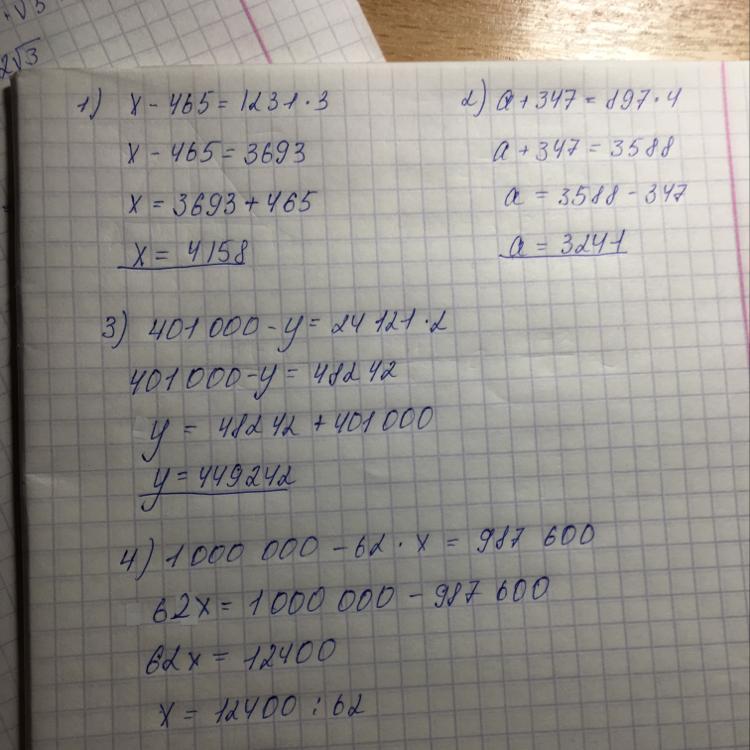 +√3
2√3
1) x - 465 = 1231 · 3
x - 465 = 3693
x = 3693 + 465
x = 4158
2) a + 347 = 897 · 4
a + 347 = 3588
a = 3588 - 347
a = 3241
3) 401 000 - y = 24 121 · 2
401 000 - y = 48242
y = 48242 + 401 000
y = 449242
4) 1 000 000 - 62 · x = 987 600
62x = 1 000 000 - 987 600
62x = 12400
x = 12400 : 62